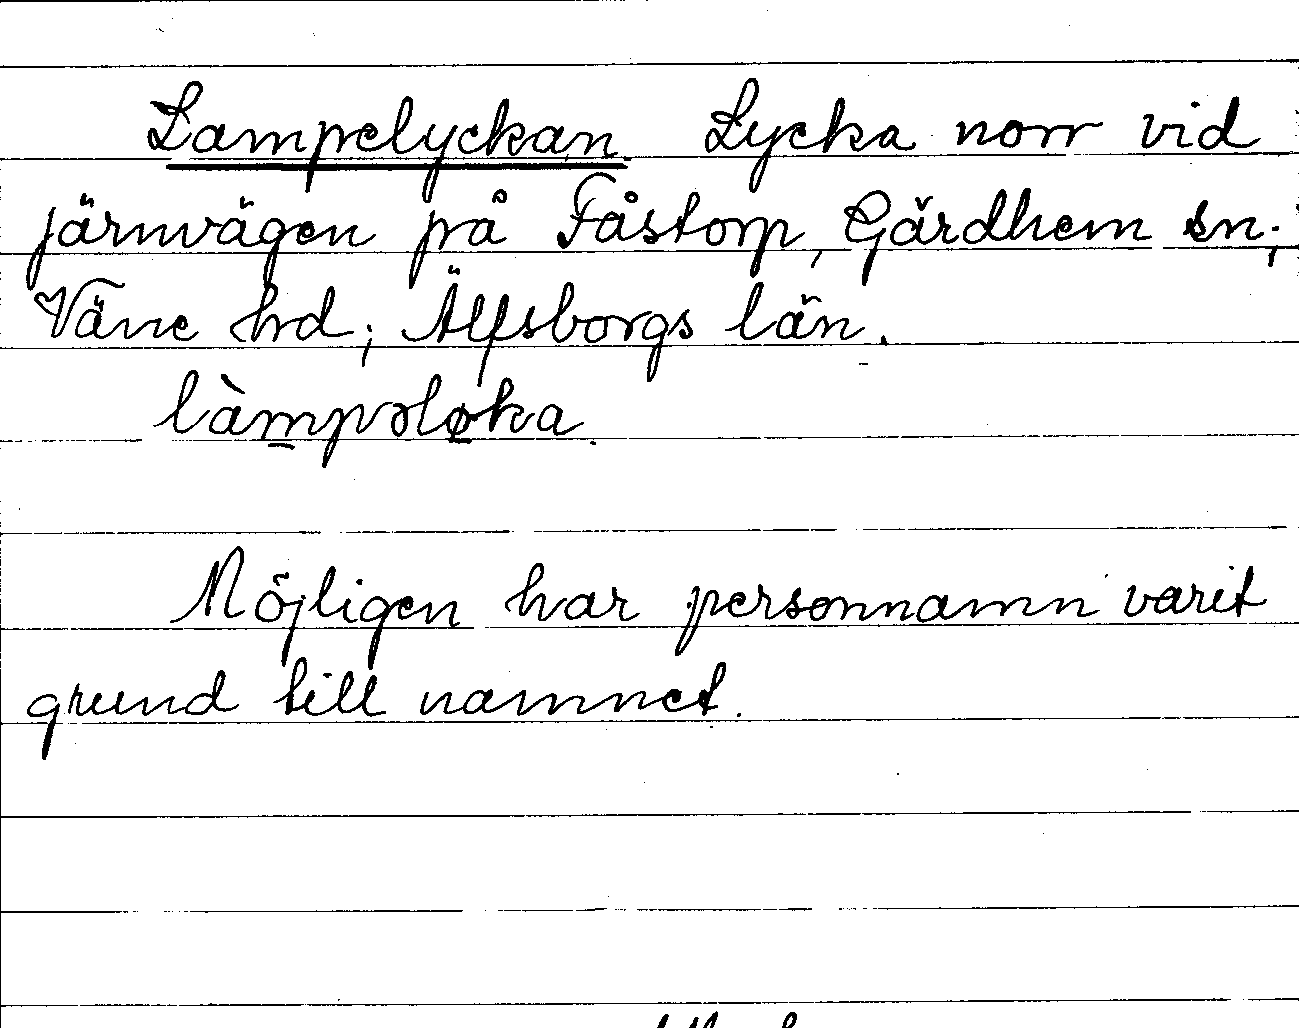 Lampelyckan Lycka norr vid
järnvägen på Fåstorp, Gärdhem sn;
Väne hrd; Älfsborgs län.
làm̲pəlø̲ka.
Möjligen har personnamn varit
grund till namnet.